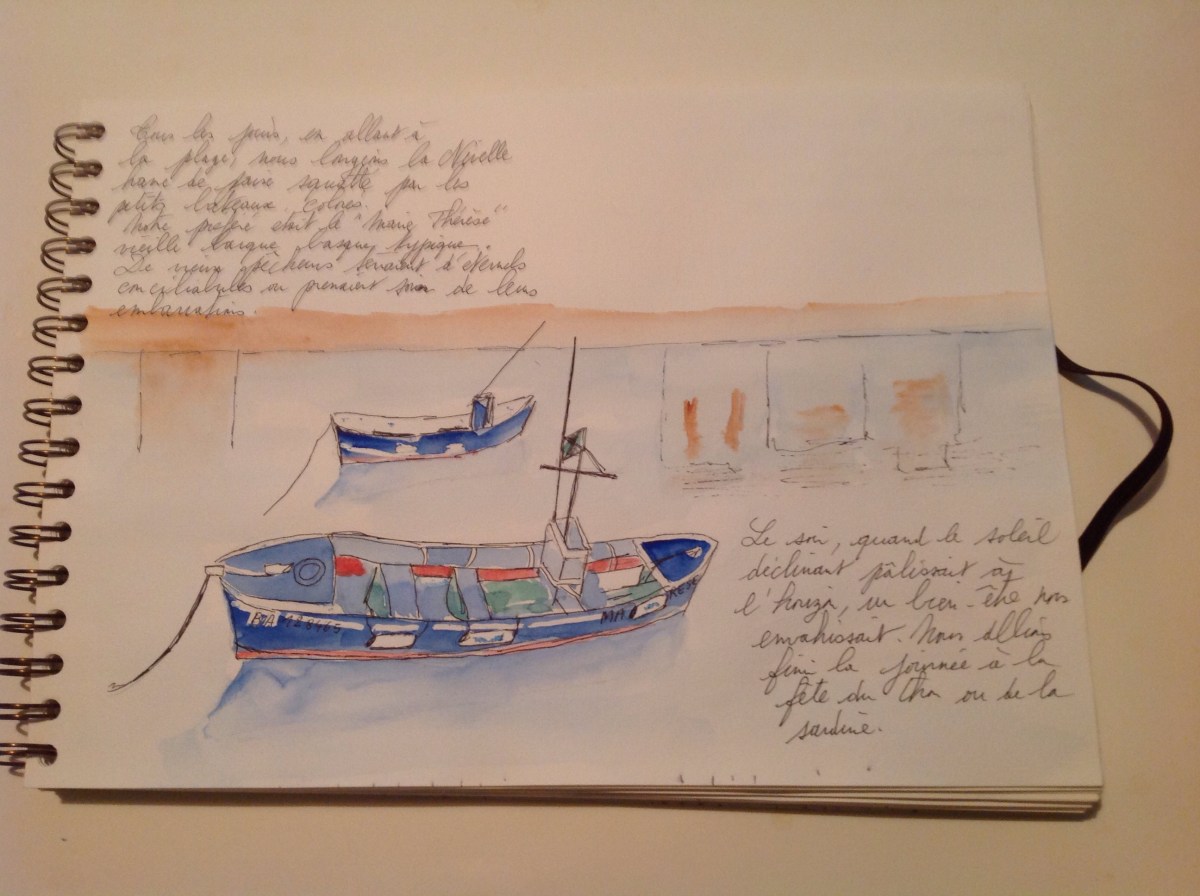 Tous les jours, en allant à
la plage, nous longions la Nivelle
havre de paix squatté par les
petits bateaux colorés.
Notre préféré était le "Marie Thérèse"
vieille barque basque typique.
De vieux pêcheurs tenaient d'éternels
conciliabules ou prenaient soin de leurs
embarcations.
BA
MA RESE
Le soir, quand le soleil
déclinant pâlissait à
l'horizon, un bien-être nous
envahissait. Nous allions
finir la journée à la
fête du thon ou de la
sardine.